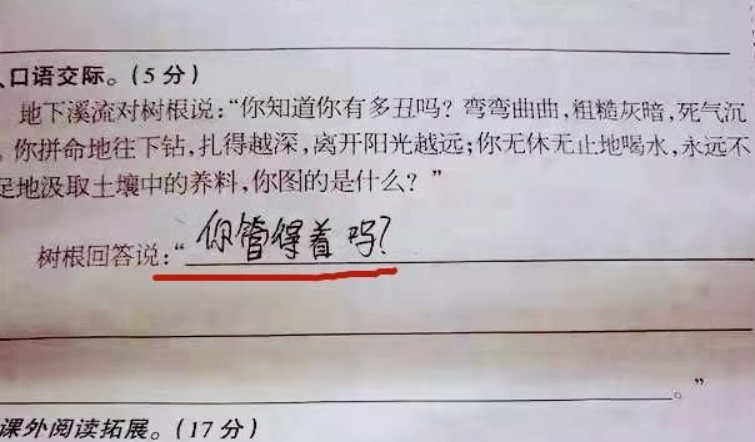 、口语交际。(5分)
地下溪流对树根说:“你知道你有多丑吗?弯弯曲曲,粗糙灰暗,死气沉
。你拼命地往下钻,扎得越深,离开阳光越远;你无休无止地喝水,永远不
足地汲取土壤中的养料,你图的是什么?”
树根回答说:“你管得着吗?
。”
课外阅读拓展。(17分)